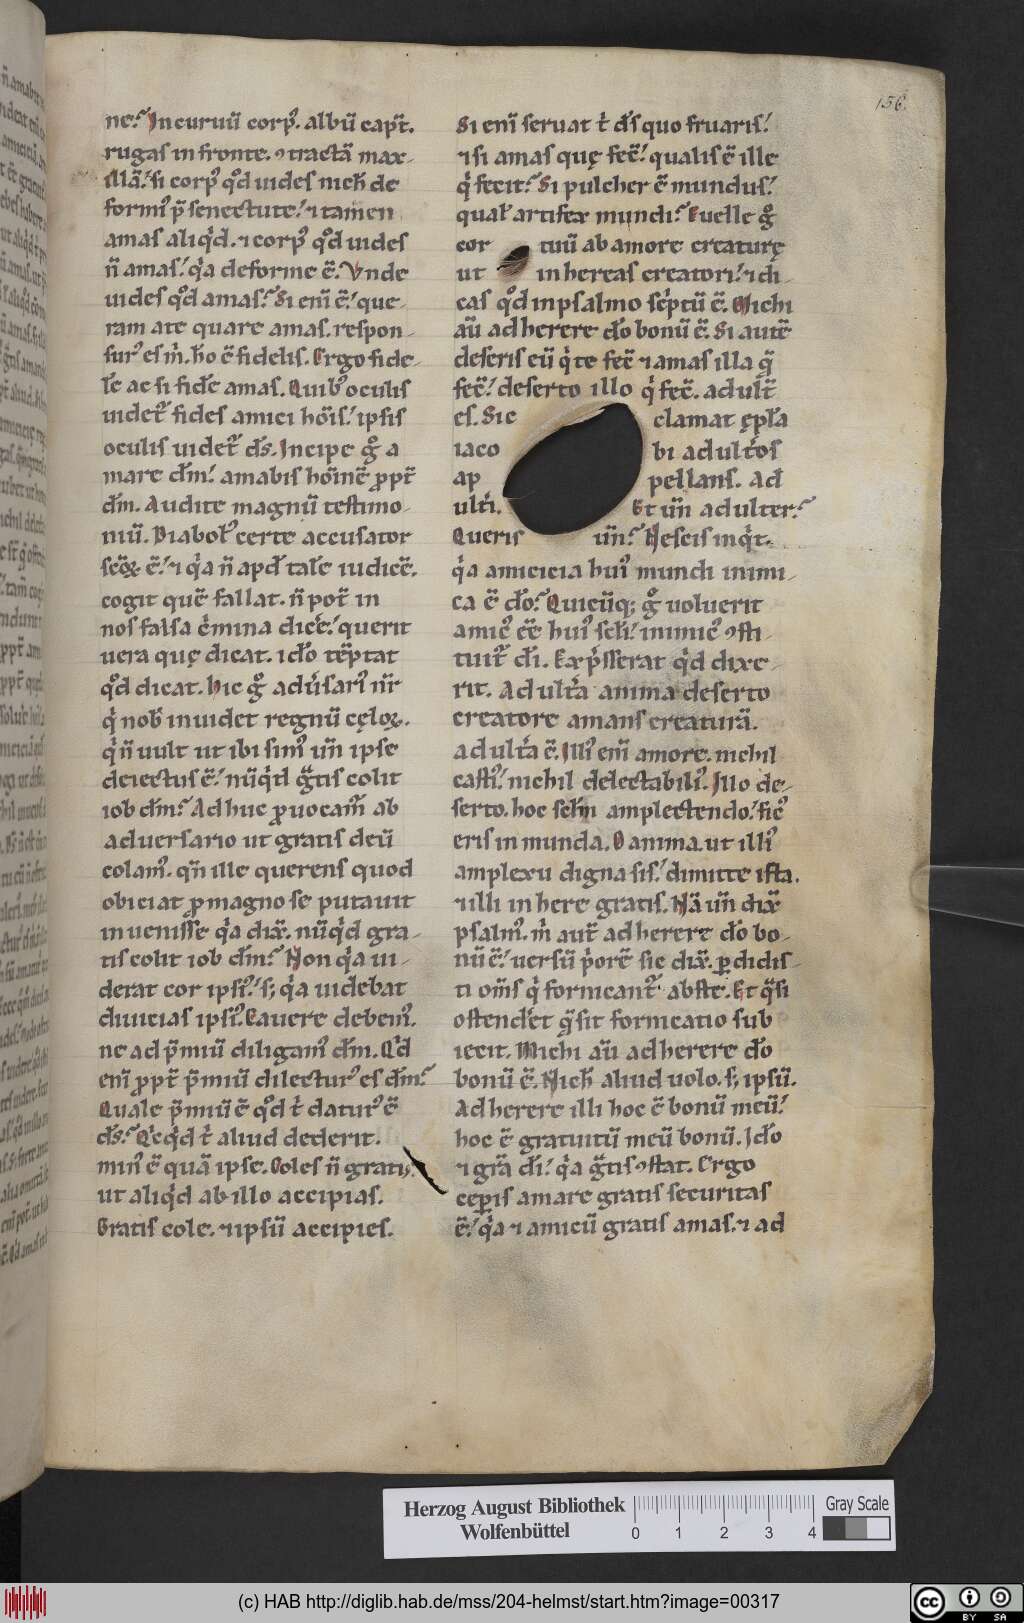 156
ne? Incuruū corp᷒. albū capt̄.
rugas in fronte. ꝯtractā max-
illā? si corp᷒ qͦd uides nich̄ de
form᷒ p̄ senectute? ⁊ tamen
amas aliqͥd. ⁊ corp᷒ qͦd uides
n̄ amas? qͥa deforme ē. Vnde
uides qͦd amas? Si eni ē? que-
ram a te quare amas. respon-
sur᷒ es m̄. h̄o ē fidelis. Ergo fide-
l̄e ac si fid̄e amas. Quib᷒ oculis
uidet᷒ fides amici hōis? ipsis
oculis uidet᷒ d̄s. Incipe gͦ a
mare d̄m? amabis hōinē ꝓpt̄
d̄m. Audite magnū testimo-
niū. Diabol᷒ certe accusator
scōꝝ ē? ⁊ qͥa n̄ apd̄ tal̄e iudicē.
cogit quē fallat. n̄ pot̄ in
nos falsa cͥmina dice̅? querit
uera quę dicat. ido̅ tēptat
qͦd dicat. hic gͦ adu̅sari᷒ nr̄
qͥ nob̄ inuidet regnū cęloꝝ.
qͥ n̄ uult ut ibi sim᷒ un̄ ipse
deiectus ē? nūqͥd gͣtis colit
iob d̄m? Adhuc ꝓuocam᷒ ab
aduersario ut gratis deū
colam᷒. qn̄ ille querens quod
obiciat ꝓ magno se putauit
inuenisse qͥa dix̄. nūqͥd gra-
tis colit iob d̄m? Non qͥa ui-
derat cor ipsi᷒? sꝫ qͥa uidebat
diuicias ipsi᷒. Cauere debem᷒.
ne ad p̄miū diligam᷒ d̄m. Qͥd
eni ꝓpt̄ p̄miū dilectur᷒ es d̄m?
Quale p̄miū ē qͦd tͥ datur᷒ ē
d̄s? Qͥcqͥd tͥ aliud dederit.
min᷒ ē quā ipse. Coles n̄ gratis?
ut aliqͥd ab illo accipias.
Gratis cole. ⁊ ipsū accipies.
Si eni seruat tͥ d̄s quo fruaris?
⁊ si amas quę fec̄? qualis ē ille
qͥ fecit? Si pulcher ē mundus?
qual᷒ artifex mundi? Euelle gͦ
cor tuū ab amore creaturę
ut inhereas creatori? ⁊ di-
cas qͦd in psalmo scͥptū ē. Michi
au̅ adherere d̄o bonū ē. Si autē
deseris eū qͥ te fec̄ ⁊ amas illa q̄
fec̄? deserto illo qͥ fec̄. adult̄
es. Sic clamat ępl̄a
iaco bi adult̄os
ap pellans. Ad
ultͥ. Et un̄ adulter?
Queris un̄? Nescis inqͥt.
qͥa amicicia hui᷒ mundi inimi-
ca ē d̄o? Quicūqꝫ gͦ uoluerit
amic᷒ ēe hui᷒ scl̄i? inimic᷒ ꝯsti-
tuit᷒ d̄i. Expͥsserat qͥd dixe-
rit. Adult̄a anima deserto
creatore amans creaturā.
adult̄a ē. Illi᷒ eni amore. nichil
casti᷒? nichil delectabili᷒. Illo de-
serto. hoc scl̄m amplectendo? fic᷒
eris inmunda. O anima. ut illi᷒
amplexu digna sis? dimitte ista.
⁊ illi inhere gratis. Nā un̄ dix̄
psalm᷒. m̄ aut̄ adherere d̄o bo-
nū ē? uersū pͥorē sic dix̄. ꝑdidis-
ti om̄s qͥ fornicant᷒ abs te. Et qͣsi
ostend̄et qͣ sit fornicatio sub
iecit. Michi au̅ adherere d̄o
bonū ē. Nich̄ aliud uolo. sꝫ ipsū.
Adherere illi hoc ē bonū meū?
hoc ē gratuitū meū bonū. Ido̅
⁊ grā d̄i? qͥa gͣtis ꝯstat. Ergo
ceꝑis amare gratis securitas
ē? qͥa ⁊ amicū gratis amas. ⁊ ad
Herzog August Bibliothek
Wolfenbüttel
0 1 2 3 4
Gray Scale
(c) HAB http://diglib.hab.de/mss/204-helmst/start.htm?image=00317
cc BY SA